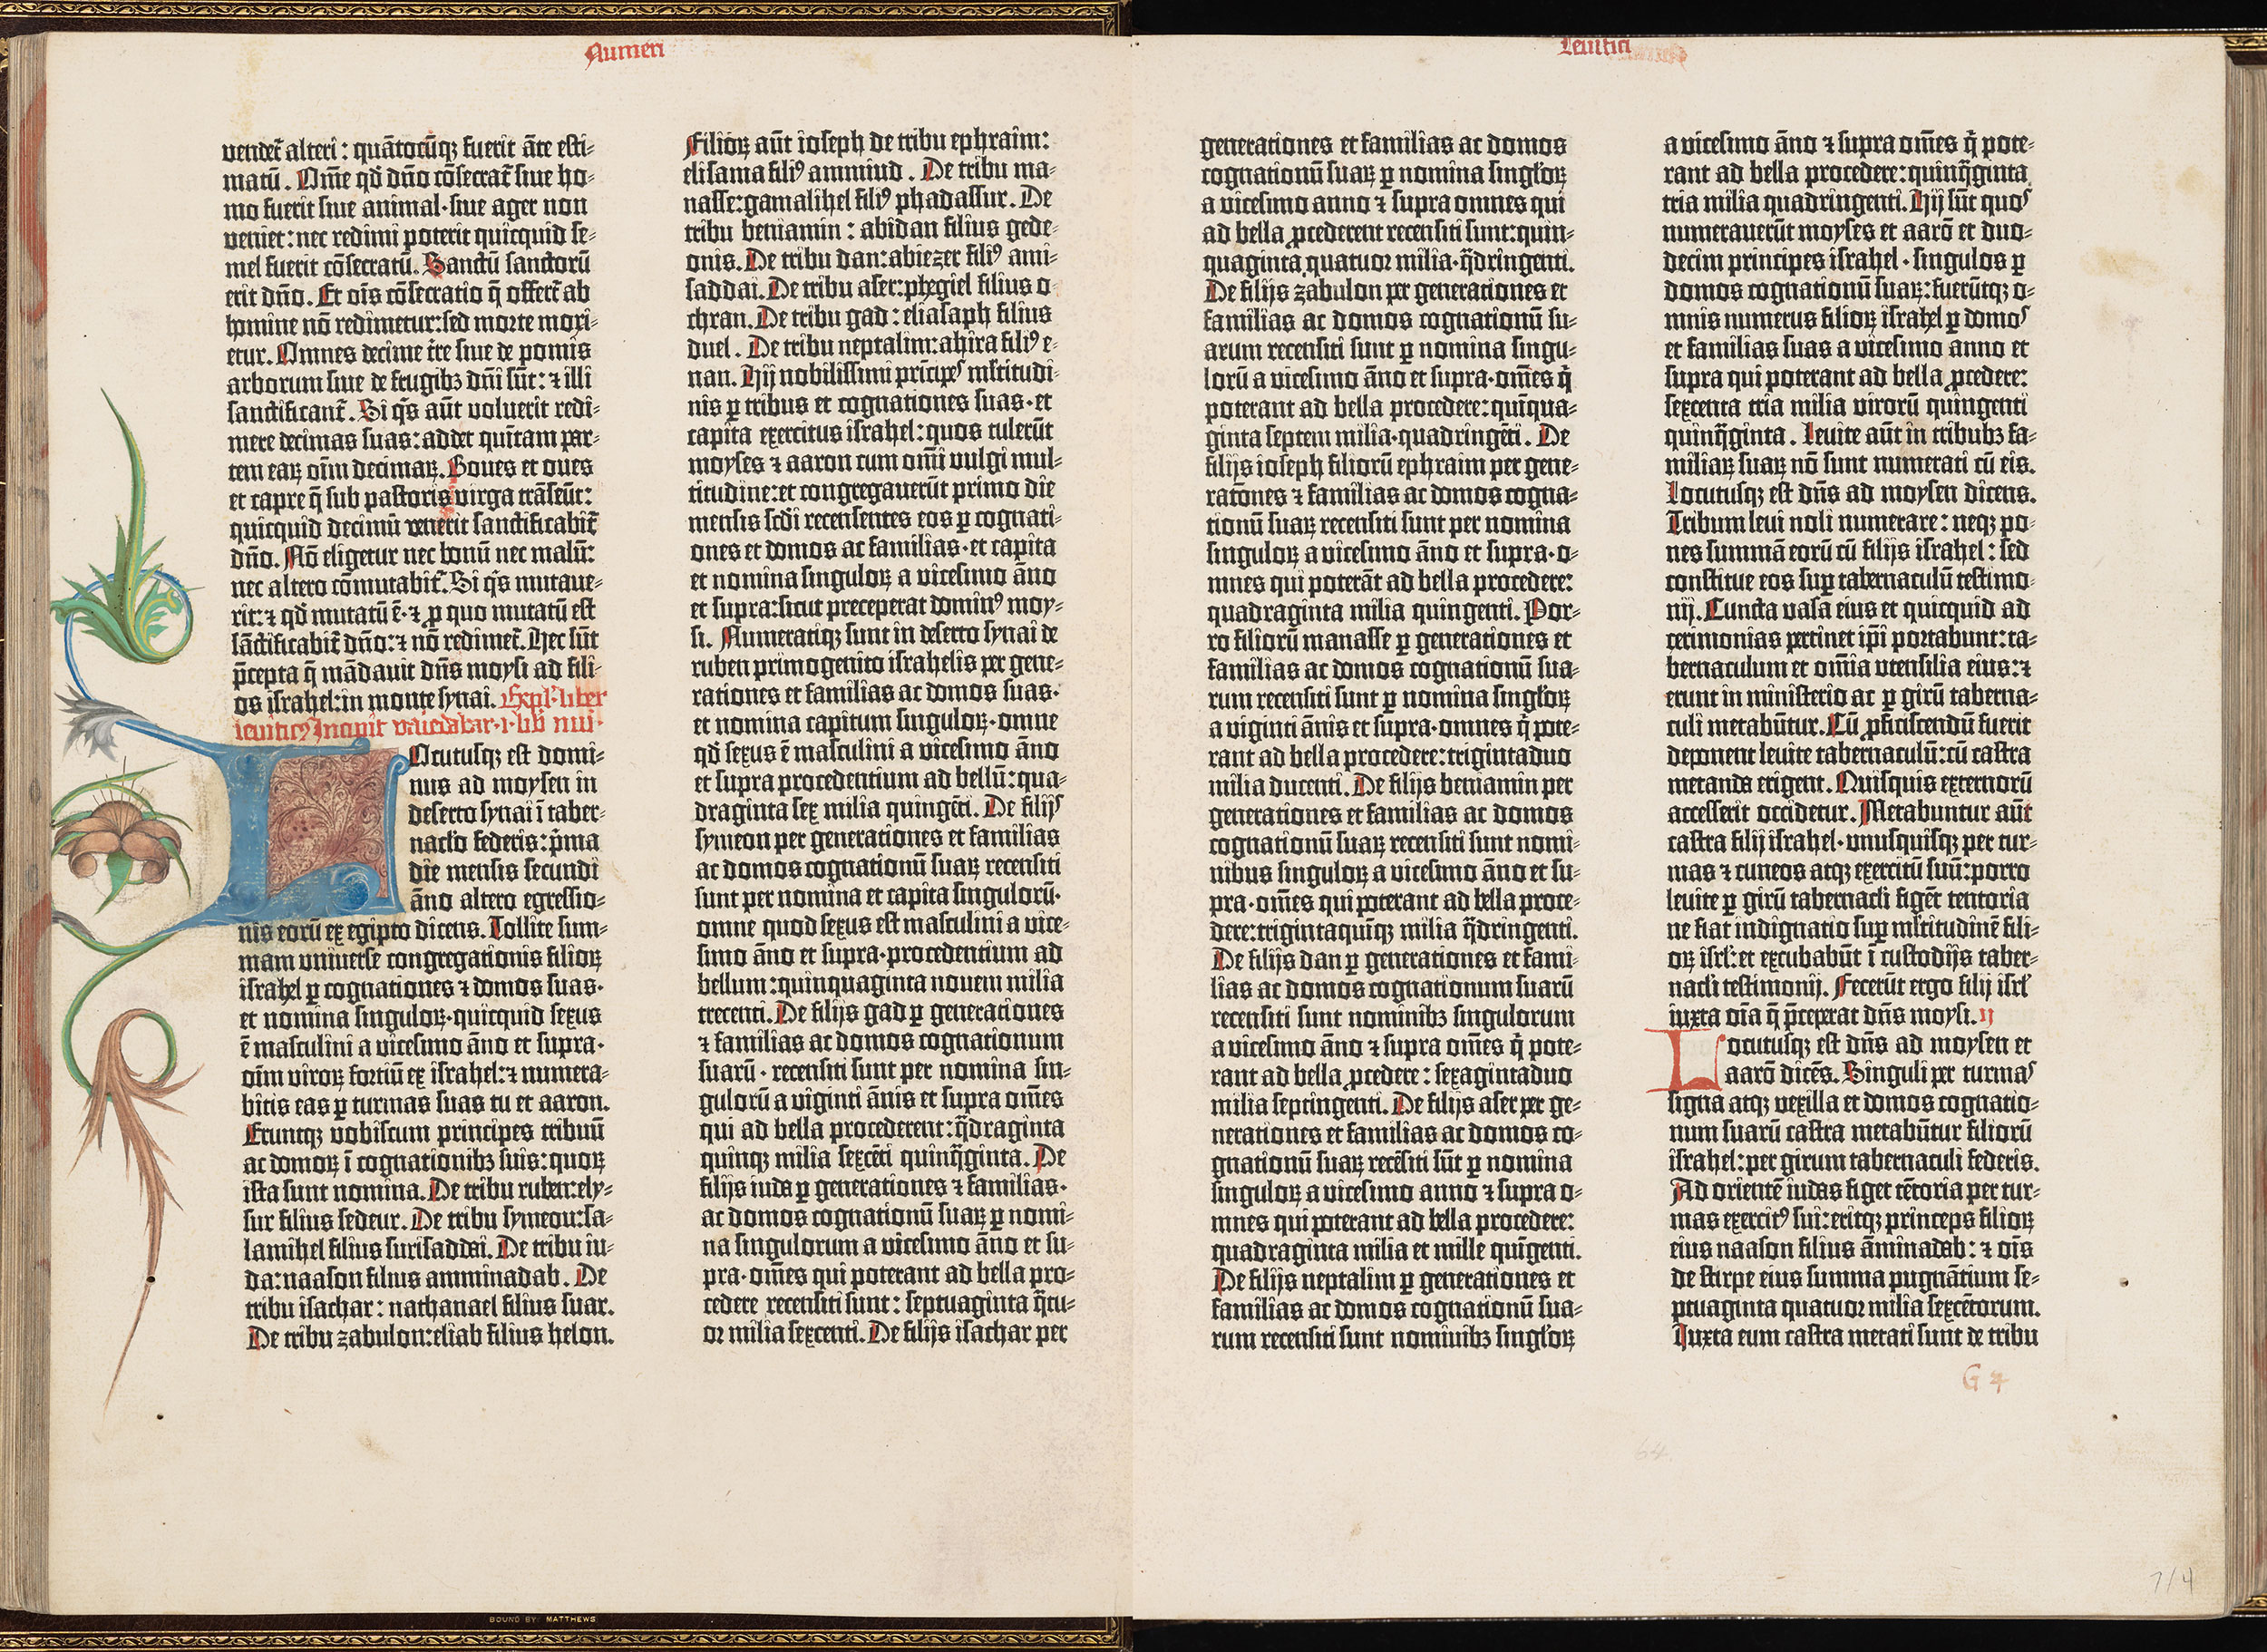 Numeri
vendet̃ alteri: quãtocũqʒ fuerit ãte esti-
matũ. Om̃e qd̃ dño cõsecrat̃ siue ho-
mo fuerit siue animal·siue ager non
veniet: nec redimi poterit quicquid se-
mel fuerit cõsecratũ. Sanctũ sanctorũ
erit dño. Et oĩs cõsecratio q̃ offert̃ ab
homine nõ redimetur: sed morte mori-
etur. Omnes decime t̃re siue de pomis
arborum siue de frugibʒ dñi sũt: ⁊ illi
sanctificant̃. Si q̃s aũt voluerit redi-
mere decimas suas: addet quĩtam par-
tem eaꝝ oĩm decimaꝝ. Boues et oues
et capre q̃ sub pastoris virga trãseũt:
quicquid decimũ venerit sanctificabit̃
dño. Nõ eligetur nec bonũ nec malũ:
nec altero cõmutabit̃. Si q̃s mutaue-
rit: ⁊ qd̃ mutatũ ẽ·⁊ ꝑ quo mutatũ est
sãctificabit̃ dño: ⁊ nõ redimet̃. Hec sũt
p̃cepta q̃ mãdauit dñs moysi ad fili-
os israhel: in monte synai. Expl· liber
leuiticꝰ Incipit vaiedabar·i·lib̃ nũi·
Locutusqʒ est domi-
nus ad moysen in
deserto synai ĩ taber-
nacl̃o federis: p̃ma
die mensis secundi
ãno altero egressio-
nis eorũ ex egipto dicens. Tollite sum-
mam vniuerse congregationis filioꝝ
israhel ꝑ cognationes ⁊ domos suas·
et nomina singuloꝝ·quicquid sexus
ẽ masculini a vicesimo ãno et supra·
oĩm viroꝝ fortiũ ex israhel: ⁊ numera-
bitis eas ꝑ turmas suas tu et aaron.
Eruntqʒ vobiscum principes tribuũ
ac domoꝝ ĩ cognationibʒ suis: quoꝝ
ista sunt nomina. De tribu ruben: ely-
sur filius sedeur. De tribu symeon: sa-
lamihel filius surisaddai. De tribu iu-
da: naason filius amminadab. De
tribu isachar: nathanael filius suar.
De tribu zabulon: eliab filius helon.
Filioꝝ aũt ioseph de tribu ephraim:
elisama filiꝰ ammiud. De tribu ma-
nasse: gamalihel filiꝰ phadassur. De
tribu beniamin: abidan filius gede-
onis. De tribu dan: abiezer filiꝰ ami-
saddai. De tribu aser: phegiel filius o-
chran. De tribu gad: eliasaph filius
duel. De tribu neptalim: ahira filiꝰ e-
nan. Hij nobilissimi prĩcipes ml̃titudi-
nis ꝑ tribus et cognationes suas·et
capita exercitus israhel: quos tulerũt
moyses ⁊ aaron cum om̃i vulgi mul-
titudine: et congregauerũt primo die
mensis scd̃i recensentes eos ꝑ cognati-
ones et domos ac familias·et capita
et nomina singuloꝝ a vicesimo ãno
et supra: sicut preceperat dominꝰ moy-
si. Numeratiqʒ sunt in deserto synai de
ruben primogenito israhelis per gene-
rationes et familias ac domos suas·
et nomina capitum singuloꝝ·omne
qd̃ sexus ẽ masculini a vicesimo ãno
et supra procedentium ad bellũ: qua-
draginta sex milia quingẽti. De filijs
symeon per generationes et familias
ac domos cognationũ suaꝝ recensiti
sunt per nomina et capita singulorũ·
omne quod sexus est masculini a vice-
simo ãno et supra·procedentium ad
bellum: quinquaginta nouem milia
trecenti. De filijs gad ꝑ generationes
⁊ familias ac domos cognationum
suarũ·recensiti sunt per nomina sin-
gulorũ a viginti ãnis et supra om̃es
qui ad bella procederent: q̃draginta
quinqʒ milia sexcẽti quinq̃ginta. De
filijs iuda ꝑ generationes ⁊ familias·
ac domos cognationũ suaꝝ ꝑ nomi-
na singulorum a vicesimo ãno et su-
pra·om̃es qui poterant ad bella pro-
cedere recensiti sunt: septuaginta q̃tu-
or milia sexcenti. De filijs isachar per
Leuitici
generationes et familias ac domos
cognationũ suaꝝ ꝑ nomina singl̃oꝝ
a vicesimo anno ⁊ supra omnes qui
ad bella ꝓcederent recensiti sunt: quin-
quaginta quatuor milia·q̃dringenti.
De filijs zabulon per generationes et
familias ac domos cognationũ su-
arum recensiti sunt ꝑ nomina singu-
lorũ a vicesimo ãno et supra·om̃es q̃
poterant ad bella procedere: quĩqua-
ginta septem milia·quadringẽti. De
filijs ioseph filiorũ ephraim per gene-
ratiões ⁊ familias ac domos cogna-
tionũ suaꝝ recensiti sunt per nomina
singuloꝝ a vicesimo ãno et supra·o-
mnes qui poterãt ad bella procedere:
quadraginta milia quingenti. Por-
ro filiorũ manasse ꝑ generationes et
familias ac domos cognationũ sua-
rum recensiti sunt ꝑ nomina singl̃oꝝ
a viginti ãnis et supra·omnes q̃ pote-
rant ad bella procedere: trigintaduo
milia ducenti. De filijs beniamin per
generationes et familias ac domos
cognationũ suaꝝ recensiti sunt nomi-
nibus singuloꝝ a vicesimo ãno et su-
pra·om̃es qui poterant ad bella proce-
dere: trigintaquĩqʒ milia q̃dringenti.
De filijs dan ꝑ generationes et fami-
lias ac domos cognationum suarũ
recensiti sunt nominibʒ singulorum
a vicesimo ãno ⁊ supra om̃es q̃ pote-
rant ad bella ꝓcedere: sexagintaduo
milia septingenti. De filijs aser per ge-
nerationes et familias ac domos co-
gnationũ suaꝝ recẽsiti sũt ꝑ nomina
singuloꝝ a vicesimo anno ⁊ supra o-
mnes qui poterant ad bella procedere:
quadraginta milia et mille quĩgenti.
De filijs neptalim ꝑ generationes et
familias ac domos cognationũ sua-
rum recensiti sunt nominibʒ singl̃oꝝ
a vicesimo ãno ⁊ supra om̃es q̃ pote-
rant ad bella procedere: quinq̃ginta
tria milia quadringenti. Hij sũt quos
numerauerũt moyses et aarõ et duo-
decim principes israhel·singulos ꝑ
domos cognationũ suaꝝ: fuerũtqʒ o-
mnis numerus filioꝝ israhel ꝑ domos
et familias suas a vicesimo anno et
supra qui poterant ad bella ꝓcedere:
sexcenta tria milia virorũ quingenti
quinq̃ginta. Leuite aũt in tribubʒ fa-
miliaꝝ suaꝝ nõ sunt numerati cũ eis.
Locutusqʒ est dñs ad moysen dicens.
Tribum leui noli numerare: neqʒ po-
nes summã eorũ cũ filijs israhel: sed
constitue eos suꝑ tabernaculũ testimo-
nij. Cuncta vasa eius et quicquid ad
cerimonias pertinet ip̃i portabunt: ta-
bernaculum et om̃ia vtensilia eius: ⁊
erunt in ministerio ac ꝑ girũ taberna-
culi metabũtur. Cũ ꝓficiscendũ fuerit
deponent leuite tabernaculũ: cũ castra
metanda erigent. Quisquis externorũ
accesserit occidetur. Metabuntur aũt
castra filij israhel·vnusquisqʒ per tur-
mas ⁊ cuneos atqʒ exercitũ suũ: porro
leuite ꝑ girũ tabernacli figẽt tentoria
ne fiat indignatio suꝑ ml̃titudinẽ fili-
oꝝ isrl̃: et excubabũt ĩ custodijs taber-
nacli testimonij. Fecerũt ergo filij isrl̃
iuxta oĩa q̃ p̃ceperat dñs moysi. II
Locutusqʒ est dñs ad moysen et
aarõ dicẽs. Singuli per turmas
signa atqʒ vexilla et domos cognatio-
num suarũ castra metabũtur filiorũ
israhel: per girum tabernaculi federis.
Ad orientẽ iudas figet tẽtoria per tur-
mas exercitꝰ sui: eritqʒ princeps filioꝝ
eius naason filius ãminadab: ⁊ oĩs
de stirpe eius summa pugnãtium se-
ptuaginta quatuor milia sexcẽtorum.
Iuxta eum castra metati sunt de tribu
G 4
64
7/4
BOUND BY MATTHEWS